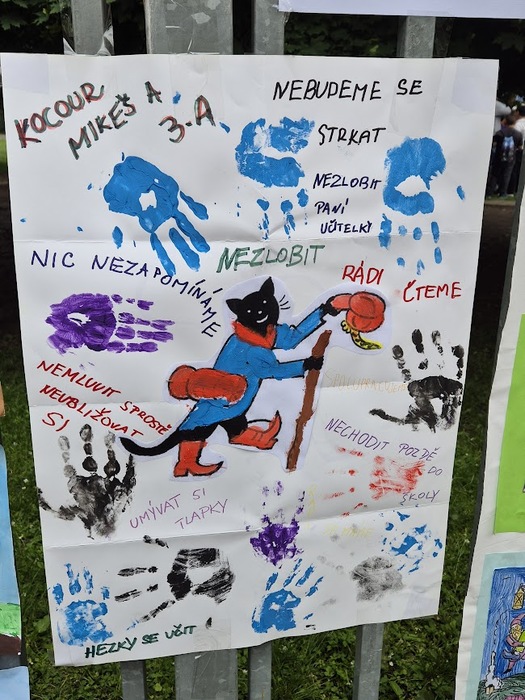 KOCOUR
MIKEŠ A
3.A
NEBUDEME SE
STRKAT
NEZLOBIT
PANÍ
UČITELKY
NEZLOBIT
NIC NEZAPOMÍNÁME
RÁDI
ČTEME
NEMLUVIT SPROSTĚ
NEUBLIŽOVAT
SI
NECHODIT POZDĚ
DO
ŠKOLY
UMÝVAT SI
TLAPKY
HEZKY SE UČIT